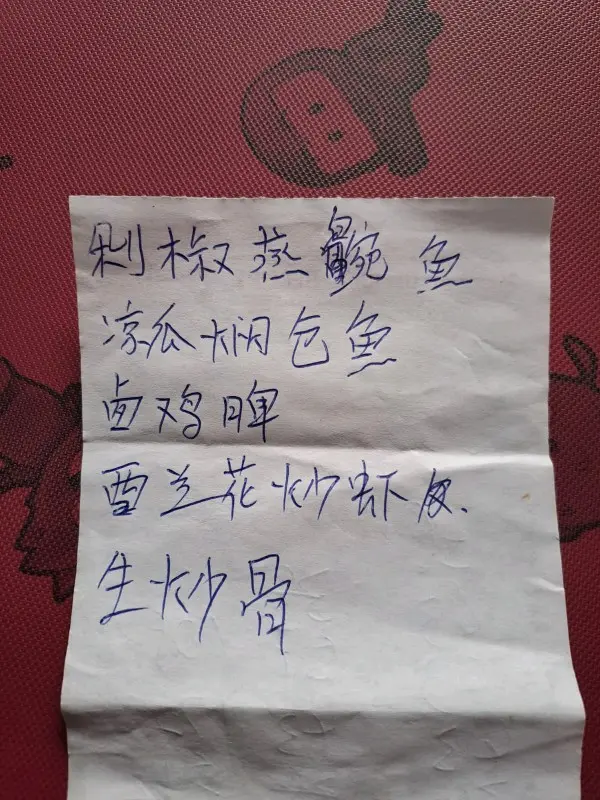 剁椒蒸鱼
凉瓜焖包鱼
卤鸡脾
西兰花炒虾
生炒骨